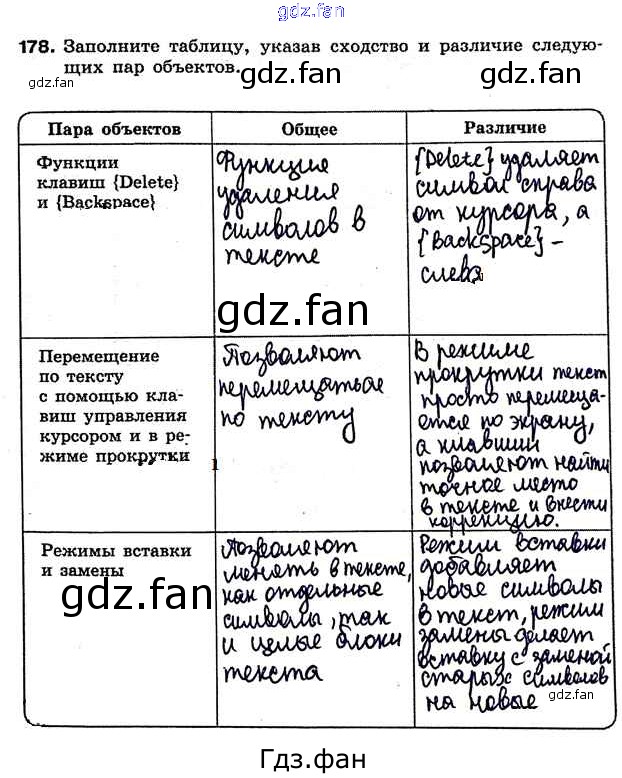 gdz.fan
178. Заполните таблицу, указав сходство и различие следую-
щих пар объектов.
gdz.fan
gdz.fan
gdz.fan
Пара объектов
Общее
Различие
Функции
клавиш {Delete}
и {Backspace}
Функция
удаления
символов в
тексте
{Delete} удаляет
символ справа
от курсора, а
{Backspace} –
слева
gdz.fan
gdz.fan
Перемещение
по тексту
с помощью кла-
виш управления
курсором и в ре-
жиме прокрутки
Позволяют
перемещаться
по тексту
В режиме
прокрутки текст
просто перемеща-
ется по экрану,
а клавиши
позволяют найти
точное место
в тексте и внести
коррекцию.
1
Режимы вставки
и замены
Позволяют
менять в тексте,
как отдельные
символы, так
и целые блоки
текста
Режим вставки
добавляет
новые символы
в текст, режим
замены делает
вставку с заменой
старых символов
на новые
gdz.fan
gdz.fan
gdz.fan
Гдз.фан